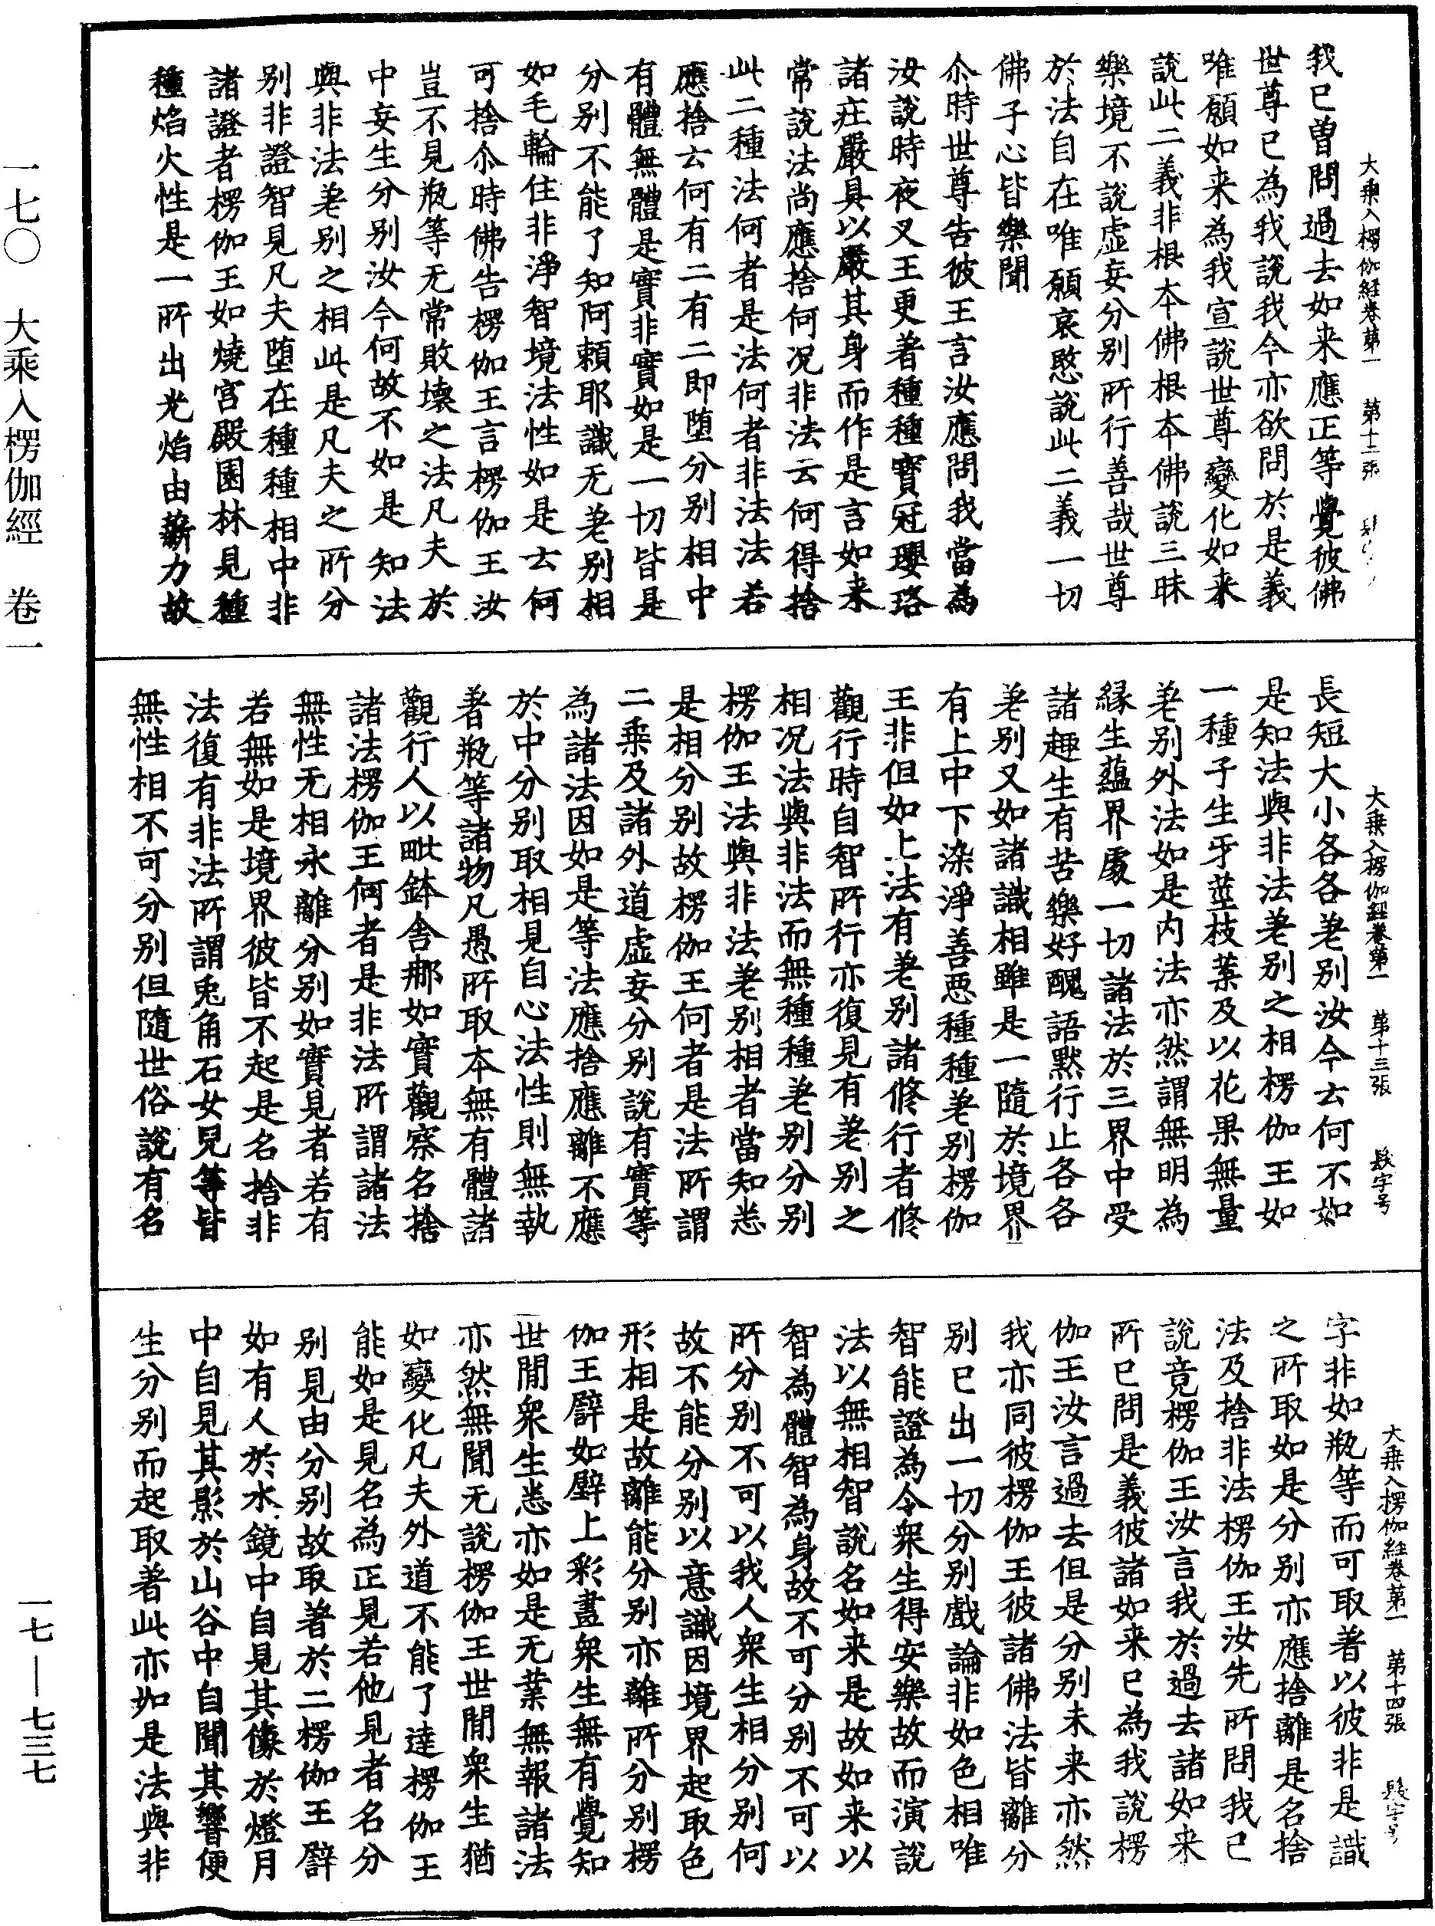 一七〇　大乘入楞伽經　卷一
一七—七三七
大乘入楞伽經卷第一　第十二張
我已曽問過去如来應正等覺彼佛
世尊已為我說我今亦欲問於是義
唯願如来為我宣說世尊變化如来
說此二義非根本佛根本佛說三昧
樂境不說虛妄分別所行善哉世尊
於法自在唯願哀愍說此二義一切
佛子心皆樂聞
尒時世尊告彼王言汝應問我當為
汝說時夜叉王更著種種寶冠瓔珞
諸莊嚴具以嚴其身而作是言如来
常說法尚應捨何況非法云何得捨
此二種法何者是法何者非法法若
應捨云何有二有二即墮分別相中
有體無體是實非實如是一切皆是
分別不能了知阿賴耶識无差別相
如毛輪住非淨智境法性如是云何
可捨尒時佛告楞伽王言楞伽王汝
豈不見瓶等无常敗壞之法凡夫於
中妄生分別汝今何故不如是知法
與非法差別之相此是凡夫之所分
別非證智見凡夫墮在種種相中非
諸證者楞伽王如燒宮殿園林見種
種焰火性是一所出光焰由薪力故
大乘入楞伽經卷第一　第十三張　髮字号
長短大小各各差別汝今云何不如
是知法與非法差別之相楞伽王如
一種子生牙莖枝葉及以花果無量
差別外法如是內法亦然謂無明為
緣生蘊界處一切諸法於三界中受
諸趣生有苦樂好醜語默行止各各
差別又如諸識相雖是一隨於境界
有上中下染淨善惡種種差別楞伽
王非但如上法有差別諸修行者修
觀行時自智所行亦復見有差別之
相況法與非法而無種種差別分別
楞伽王法與非法差別相者當知悉
是相分別故楞伽王何者是法所謂
二乘及諸外道虛妄分別說有實等
為諸法因如是等法應捨應離不應
於中分別取相見自心法性則無執
著瓶等諸物凡愚所取本無有體諸
觀行人以毗鉢舍那如實觀察名捨
諸法楞伽王何者是非法所謂諸法
無性无相永離分別如實見者若有
若無如是境界彼皆不起是名捨非
法復有非法所謂兎角石女兒等皆
無性相不可分別但隨世俗說有名
大乘入楞伽經卷第一　第十四張　髮字号
字非如瓶等而可取著以彼非是識
之所取如是分別亦應捨離是名捨
法及捨非法楞伽王汝先所問我已
說竟楞伽王汝言我於過去諸如来
所已問是義彼諸如来已為我說楞
伽王汝言過去但是分別未来亦然
我亦同彼楞伽王彼諸佛法皆離分
別已出一切分別戲論非如色相唯
智能證為令衆生得安樂故而演說
法以無相智說名如来是故如来以
智為體智為身故不可分別不可以
所分別不可以我人衆生相分別何
故不能分別以意識因境界起取色
形相是故離能分別亦離所分別楞
伽王譬如壁上彩畫衆生無有覺知
世間衆生悉亦如是无業無報諸法
亦然無聞无說楞伽王世間衆生猶
如變化凡夫外道不能了達楞伽王
能如是見名為正見若他見者名分
別見由分別故取著於二楞伽王譬
如有人於水鏡中自見其像於燈月
中自見其影於山谷中自聞其響便
生分別而起取著此亦如是法與非